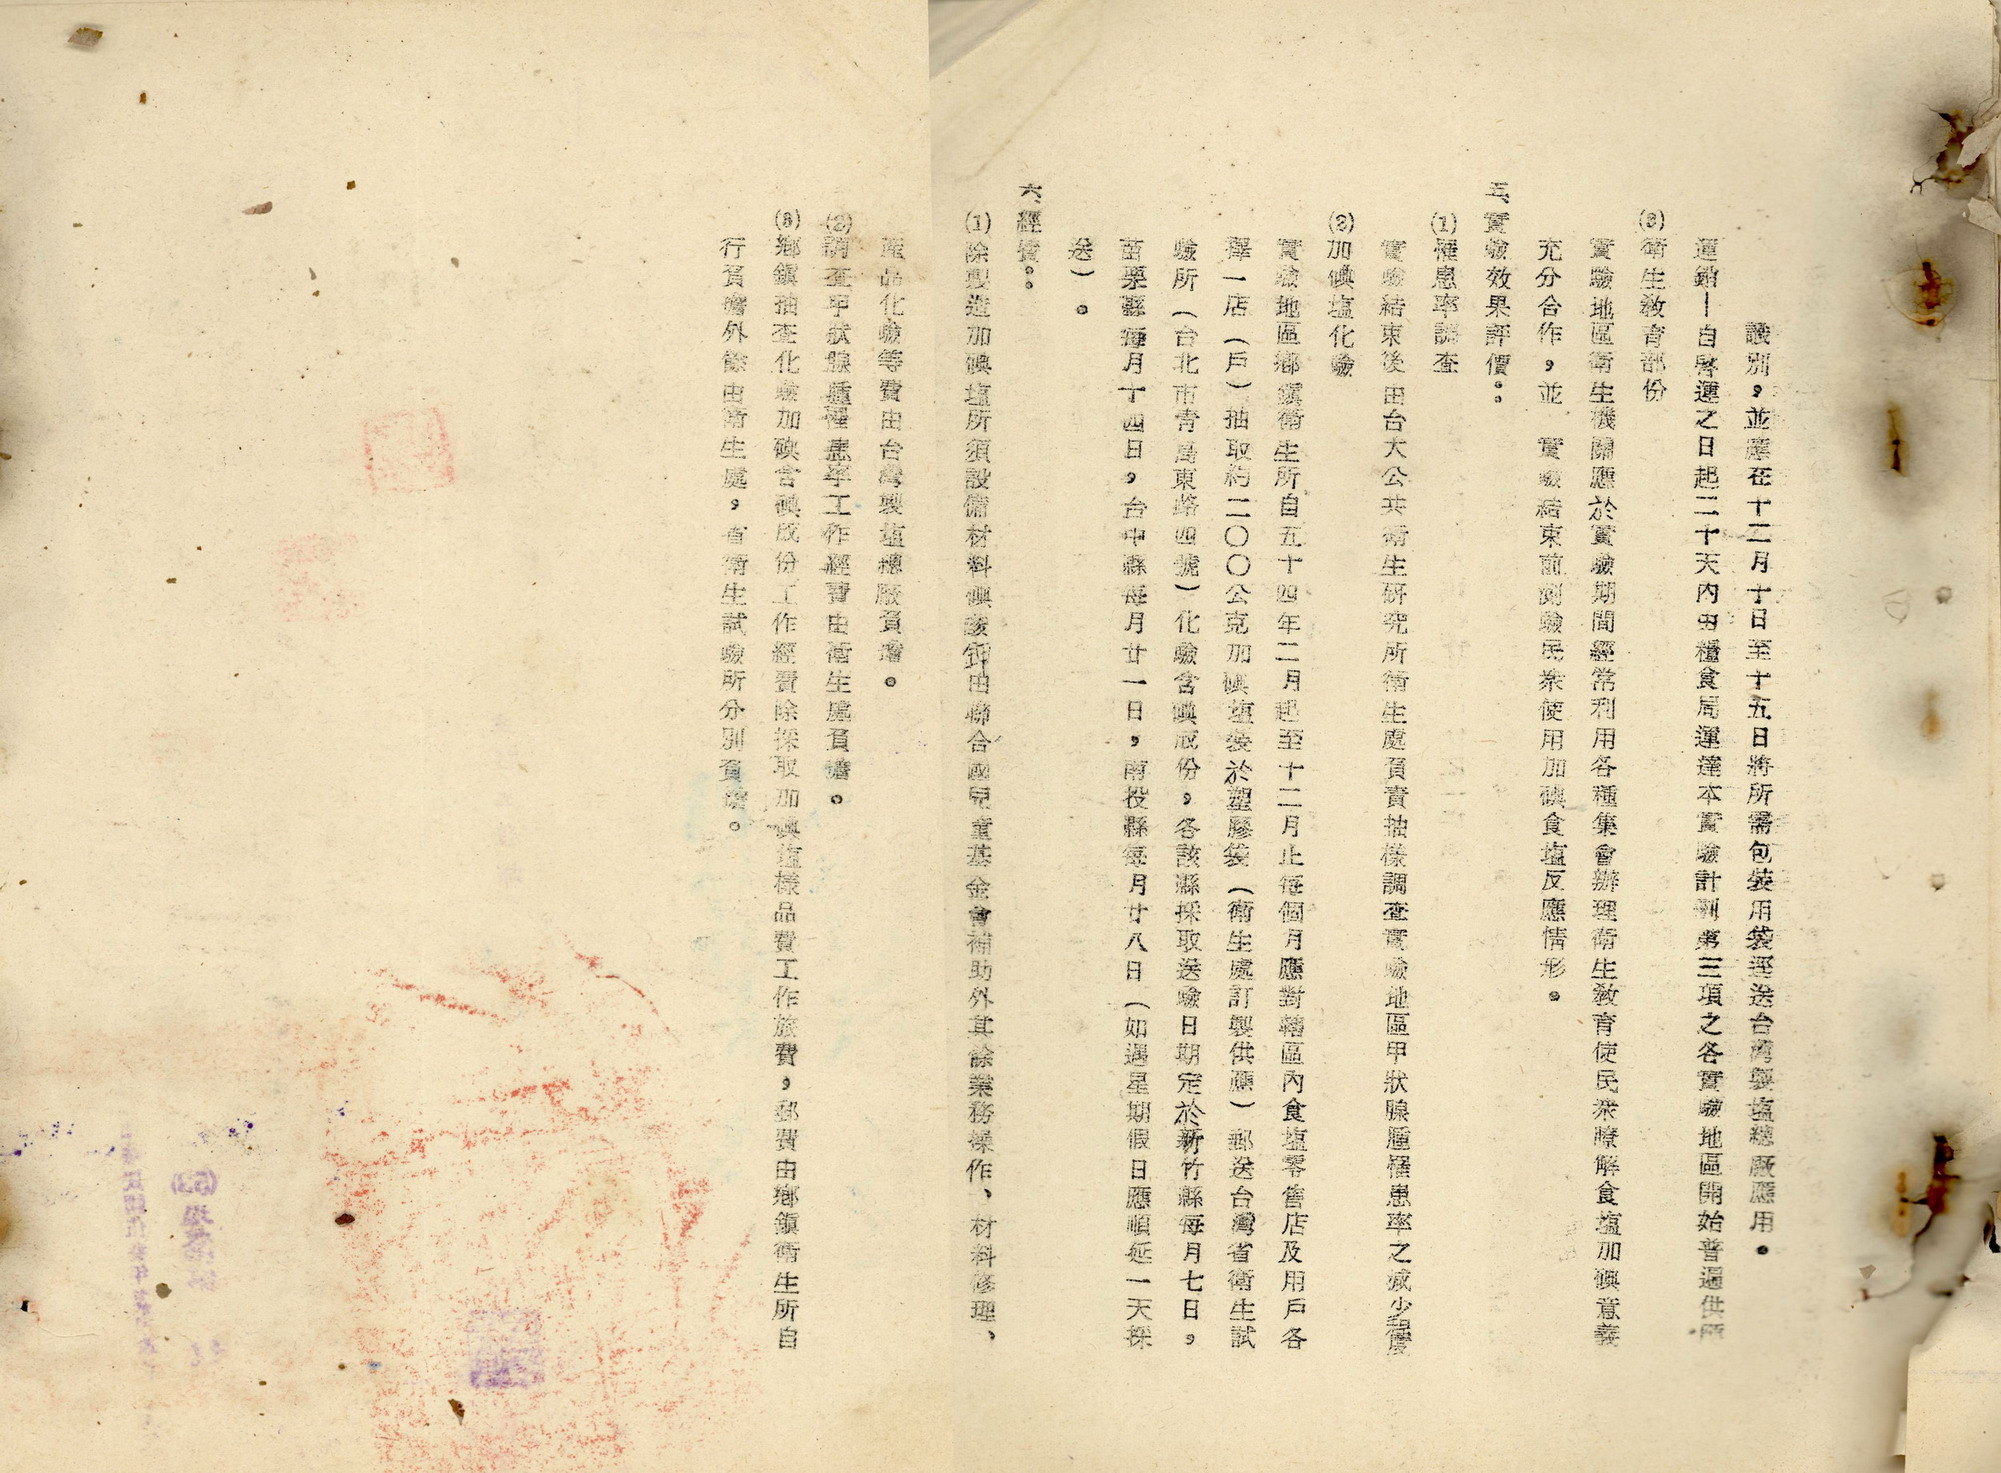 識別，並應在十二月十日至十五日將所需包裝用袋逕送台灣製塩總廠應用。
運銷—自啓運之日起二十天內由糧食局運達本實驗計劃第三項之各實驗地區開始普遍供應
(3)衛生教育部份
實驗地區衛生機關應於實驗期間經常利用各種集會辦理衛生教育使民衆瞭解食塩加碘意義
充分合作，並 實驗結束前測驗民衆使用加碘食塩反應情形。
五、實驗效果評價：
(1)罹患率調查
實驗結束後由台大公共衛生研究所衛生處負責抽樣調查實驗地區甲狀腺腫罹患率之減少程度
(2)加碘塩化驗
實驗地區鄉鎮衛生所自五十四年二月起至十二月止每個月應對轄區內食塩零售店及用戶各
擇一店（戶）抽取約二〇〇公克加碘塩裝於塑膠袋（衛生處訂製供應）郵送台灣省衛生試
驗所（台北市青島東路四號）化驗含碘成份，各該縣採取送驗日期定於新竹縣每月七日，
苗栗縣每月十四日，台中縣每月廿一日，南投縣每月廿八日（如遇星期假日應順延一天採
送）。
六、經費：
(1)除製造加碘塩所須設備材料碘酸鉀由聯合國兒童基金會補助外其餘業務操作、材料修理、
產品化驗等費由台灣製塩總廠負擔。
(2)調查甲狀腺腫罹患率工作經費由衛生處負擔。
(3)鄉鎮抽查化驗加碘含碘成份工作經費除採取加碘塩樣品費工作旅費，郵費由鄉鎮衛生所自
行負擔外餘由衛生處，省衛生試驗所分別負擔。